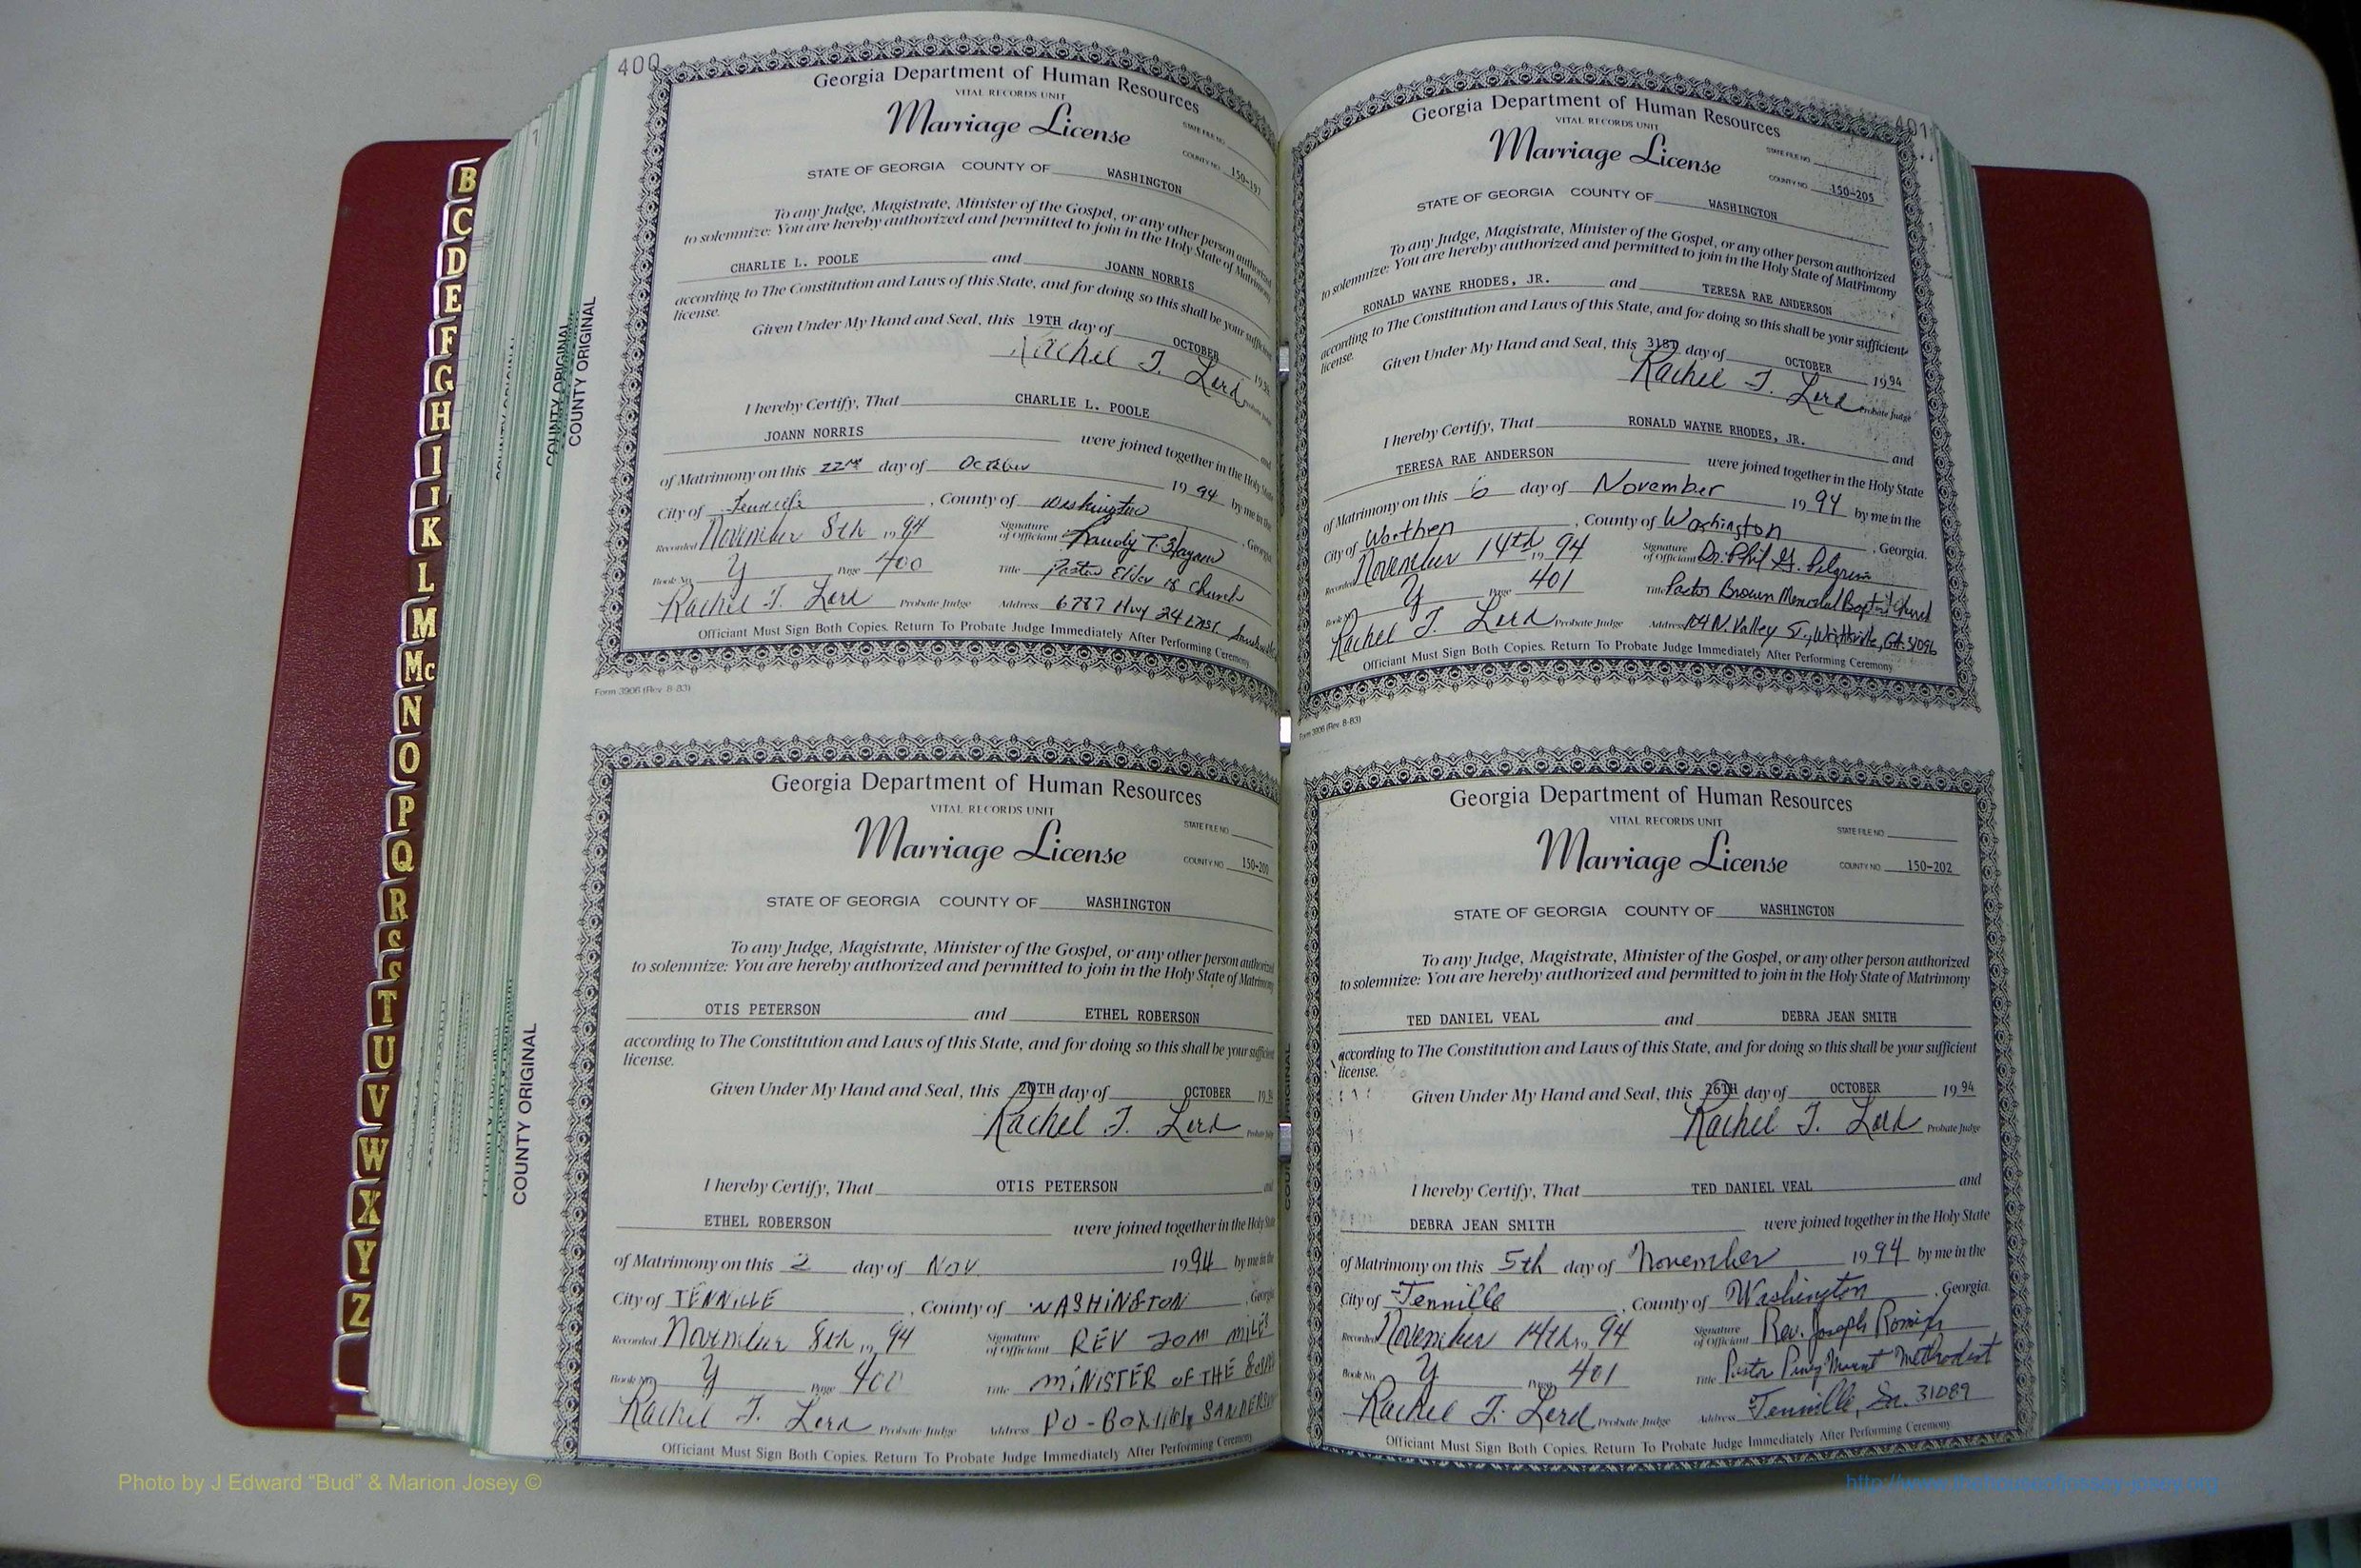 400
Georgia Department of Human Resources
VITAL RECORDS UNIT
Marriage License
STATE FILE NO.
COUNTY NO. 150-197
STATE OF GEORGIA COUNTY OF WASHINGTON
To any Judge, Magistrate, Minister of the Gospel, or any other person authorized
to solemnize: You are hereby authorized and permitted to join in the Holy State of Matrimony
CHARLIE L. POOLE and JOANN NORRIS
according to The Constitution and Laws of this State, and for doing so this shall be your sufficient
license.
Given Under My Hand and Seal, this 19TH day of OCTOBER
Rachel T. Lord Probate Judge
I hereby Certify, That CHARLIE L. POOLE and
JOANN NORRIS were joined together in the Holy State
of Matrimony on this 22nd day of October 19 94 by me in the
City of Tennille, County of Washington, Georgia
Recorded November 8th 19 94 Signature of Officiant Randy T.
Book No. Y Page 400 Title Pastor Elder of Church
Rachel T. Lord Probate Judge Address 6787 Hwy 24 East
Officiant Must Sign Both Copies. Return To Probate Judge Immediately After Performing Ceremony.
Form 3906 (Rev. 8-83)
Georgia Department of Human Resources
VITAL RECORDS UNIT
Marriage License
STATE FILE NO.
COUNTY NO. 150-200
STATE OF GEORGIA COUNTY OF WASHINGTON
To any Judge, Magistrate, Minister of the Gospel, or any other person authorized
to solemnize: You are hereby authorized and permitted to join in the Holy State of Matrimony
OTIS PETERSON and ETHEL ROBERSON
according to The Constitution and Laws of this State, and for doing so this shall be your sufficient
license.
Given Under My Hand and Seal, this 20TH day of OCTOBER
Rachel T. Lord Probate Judge
I hereby Certify, That OTIS PETERSON and
ETHEL ROBERSON were joined together in the Holy State
of Matrimony on this 2 day of Nov. 1994 by me in the
City of TENNILLE, County of WASHINGTON, Georgia
Recorded November 8th 19 94 Signature of Officiant REV
Book No. Y Page 400 Title MINISTER OF THE
Rachel T. Lord Probate Judge Address PO-BOX
Officiant Must Sign Both Copies. Return To Probate Judge Immediately After Performing Ceremony.
401
Georgia Department of Human Resources
VITAL RECORDS UNIT
Marriage License
STATE FILE NO.
COUNTY NO. 150-205
STATE OF GEORGIA COUNTY OF WASHINGTON
To any Judge, Magistrate, Minister of the Gospel, or any other person authorized
to solemnize: You are hereby authorized and permitted to join in the Holy State of Matrimony
RONALD WAYNE RHODES, JR. and TERESA RAE ANDERSON
according to The Constitution and Laws of this State, and for doing so this shall be your sufficient
license.
Given Under My Hand and Seal, this 31ST day of OCTOBER 19 94
Rachel T. Lord Probate Judge
I hereby Certify, That RONALD WAYNE RHODES, JR. and
TERESA RAE ANDERSON were joined together in the Holy State
of Matrimony on this 6 day of November 19 94 by me in the
City of Warthen, County of Washington, Georgia.
Recorded November 14th 19 94 Signature of Officiant Dr. Phil G. Pilgrim
Book No. Y Page 401 Title Pastor Brown Memorial Baptist Church
Rachel T. Lord Probate Judge Address 104 N. Valley St., Wrightsville, GA. 31096
Officiant Must Sign Both Copies. Return To Probate Judge Immediately After Performing Ceremony
Form 3906 (Rev. 8-83)
Georgia Department of Human Resources
VITAL RECORDS UNIT
Marriage License
STATE FILE NO.
COUNTY NO. 150-202
STATE OF GEORGIA COUNTY OF WASHINGTON
To any Judge, Magistrate, Minister of the Gospel, or any other person authorized
to solemnize: You are hereby authorized and permitted to join in the Holy State of Matrimony
TED DANIEL VEAL and DEBRA JEAN SMITH
according to The Constitution and Laws of this State, and for doing so this shall be your sufficient
license.
Given Under My Hand and Seal, this 26TH day of OCTOBER 19 94
Rachel T. Lord Probate Judge
I hereby Certify, That TED DANIEL VEAL and
DEBRA JEAN SMITH were joined together in the Holy State
of Matrimony on this 5th day of November 19 94 by me in the
City of Tennille, County of Washington, Georgia.
Recorded November 14th 19 94 Signature of Officiant Rev. Joseph
Book No. Y Page 401 Title Pastor Piney Mount Methodist
Rachel T. Lord Probate Judge Address Tennille, Ga. 31089
Officiant Must Sign Both Copies. Return To Probate Judge Immediately After Performing Ceremony.
COUNTY ORIGINAL
COUNTY ORIGINAL
COUNTY ORIGINAL
B
C
D
E
F
G
H
I
J
K
L
M
Mc
N
O
P
Q
R
S
S
T
U
V
W
X
Y
Z
Photo by J Edward “Bud” & Marion Josey ©
http://www.thehouseofjossey-josey.org